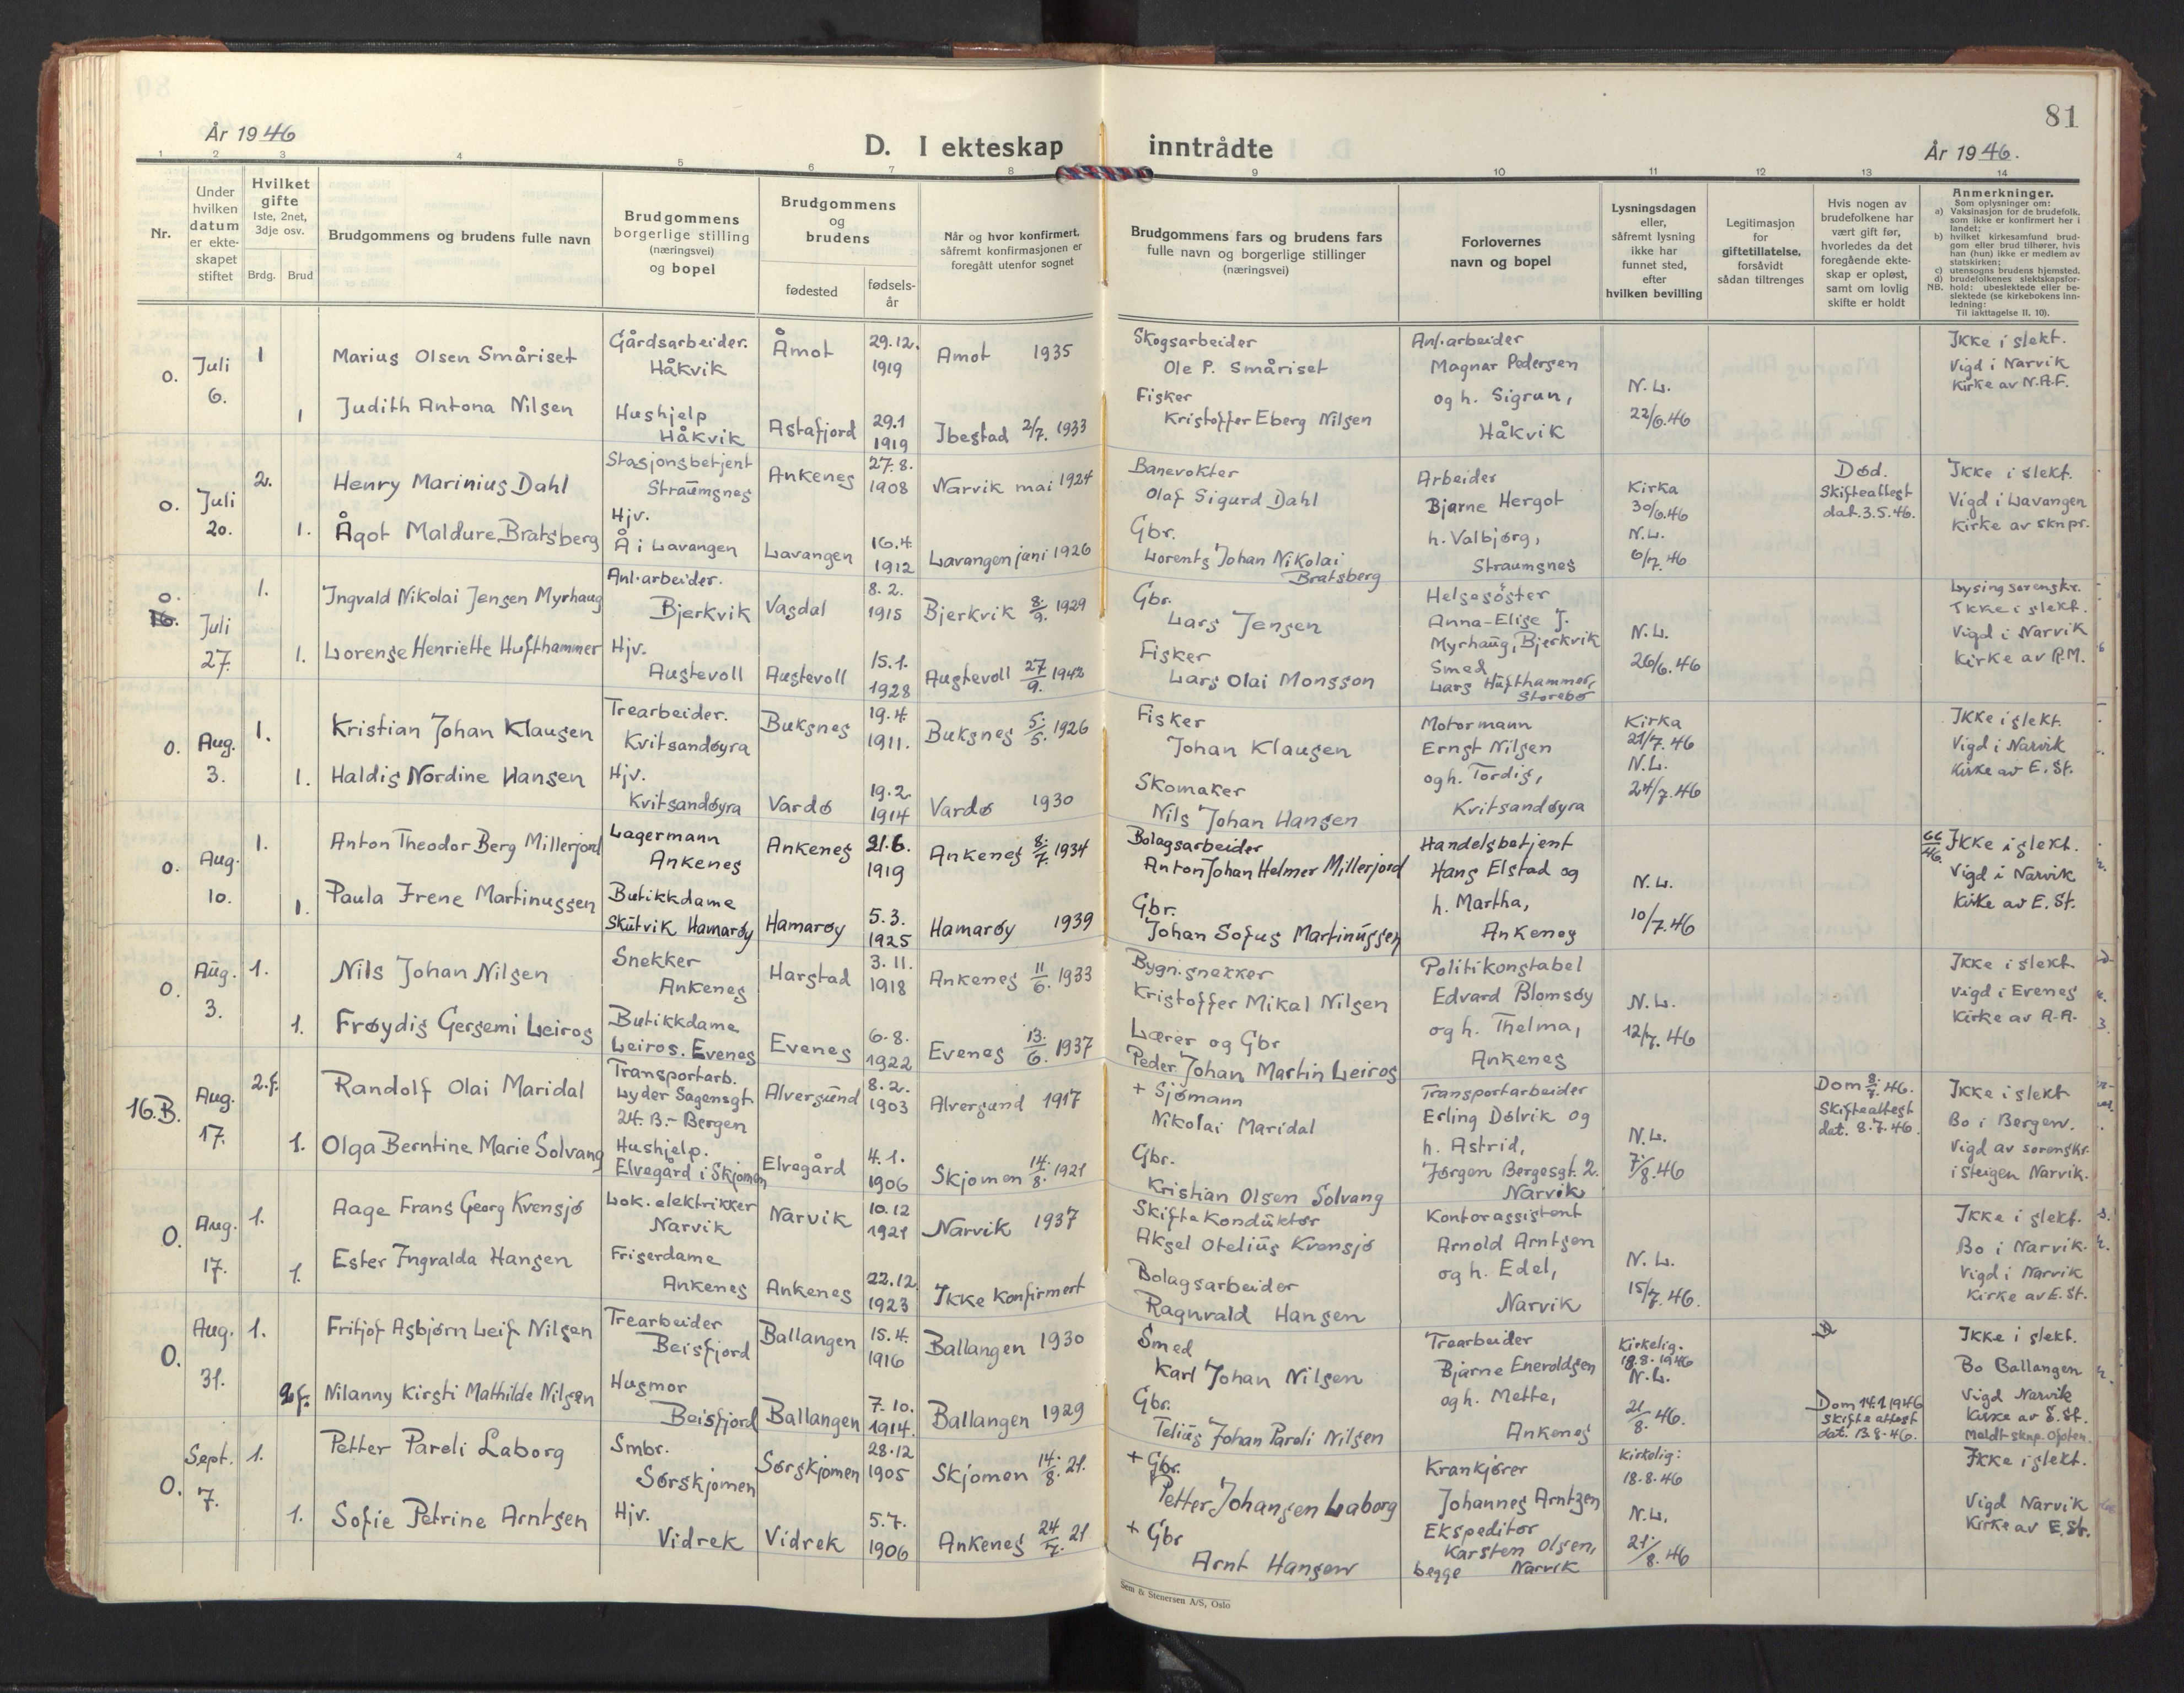 81
År 1946
D. I ekteskap inntrådte
År 1946.
1 2 3 4 5 6 7 8 9 10 11 12 13 14
Nr.
Under
hvilken
datum
er ekte-
skapet
stiftet
Hvilket
gifte
1ste, 2net,
3dje osv.
Brdg. Brud
Brudgommens og brudens fulle navn
Brudgommens
borgerlige stilling
(næringsvei)
og bopel
Brudgommens
og
brudens
fødested
fødsels-
år
Når og hvor konfirmert.
såfremt konfirmasjonen er
foregått utenfor sognet
Brudgommens fars og brudens fars
fulle navn og borgerlige stillinger
(næringsvei)
Forlovernes
navn og bopel
Lysningsdagen
eller,
såfremt lysning
ikke har
funnet sted,
efter
hvilken bevilling
Legitimasjon
for
giftetillatelse,
forsåvidt
sådan tiltrenges
Hvis nogen av
brudefolkene har
vært gift før,
hvorledes da det
foregående ekte-
skap er opløst,
samt om lovlig
skifte er holdt
Anmerkninger.
Som oplysninger om:
a) Vaksinasjon for de brudefolk,
som ikke er konfirmert her i
landet;
b) hvilket kirkesamfund brud-
gom eller brud tilhører, hvis
han (hun) ikke er medlem av
statskirken;
c) utensogns brudens hjemsted.
d) brudefolkenes slektskapsfor-
NB. hold: ubeslektede eller be-
slektede (se kirkebokens inn-
ledning:
Til iakttagelse II, 10).
o. Juli 6.
1 Marius Olsen Småriset
Gårdsarbeider.
Håkvik
Åmot
29.12.
1919
Åmot 1935
Skogsarbeider
Ole P. Småriset
1 Judith Antona Nilsen
Hushjelp
Håkvik
Astafjord
29.1
1919
Ibestad 2/7. 1933
Fisker
Kristoffer Eberg Nilsen
Anl.arbeider
Magnar Pedersen
og h. Sigrun,
Håkvik
N.L.
22/6.46
Ikke i slekt.
Vigd i Narvik
Kirke av N.A.F.
o. Juli 20.
2. Henry Marinius Dahl
Stasjonsbetjent
Straumsnes
Ankenes
27.8.
1908
Narvik mai 1924
Banevokter
Olaf Sigurd Dahl
1. Ågot Maldure Bratsberg
Hjv.
Å i Lavangen
Lavangen
16.4
1912
Lavangen juni 1926
Gbr.
Lorents Johan Nikolai
Bratsberg
Arbeider
Bjarne Hergot
h. Valbjørg,
Straumsnes
Kirka
30/6.46
N.L.
6/7.46
Død.
Skifteattest
dat. 3.5.46.
Ikke i slekt.
Vigd i Lavangen
Kirke av sknpr.
o.
16.
Juli 27.
1. Ingvald Nikolai Jensen Myrhaug
Anl.arbeider.
Bjerkvik
Vasdal
8.2.
1915
Bjerkvik 8/9. 1929
Gbr.
Lars Jensen
1. Lorense Henriette Hufthammer
Hjv.
Austevoll
Austevoll
15.1.
1928
Austevoll 27/9. 1942
Fisker
Lars Olai Monsson
Helsesöster
Anna-Elise J.
Myrhaug, Bjerkvik
Smed
Lars Hufthammer,
Storebø
N.L.
26/6.46
Lysing sorenskr.
Ikke i slekt.
Vigd i Narvik
Kirke av R.M.
o. Aug. 3.
1. Kristian Johan Klausen
Trearbeider.
Kvitsandøyra
Buksnes
19.4.
1911.
Buksnes 5./5. 1926
Fisker
Johan Klausen
1. Haldis Nordine Hansen
Hjv.
Kvitsandøyra
Vardø
19.2
1914
Vardø 1930
Skomaker
Nils Johan Hansen
Motormann
Ernst Nilsen
og h. Tordis,
Kvitsandøyra
Kirka
21/7.46
N.L.
24/7.46
Ikke i slekt.
Vigd i Narvik
Kirke av E.St.
o. Aug. 10.
1. Anton Theodor Berg Millerjord
Lagermann
Ankenes
Ankenes
21.6.
1919
Ankenes 8./7. 1934
Bolagsarbeider
Anton Johan Helmer Millerjord
1. Paula Irene Martinussen
Butikkdame
Skutvik Hamarøy
Hamarøy
5.3.
1925
Hamarøy 1939
Gbr.
Johan Sofus Martinussen
Handelsbetjent
Hans Elstad og
h. Martha,
Ankenes
N.L.
10/7.46
66/46 Ikke i slekt.
Vigd i Narvik
Kirke av E.St.
o. Aug. 3.
1. Nils Johan Nilsen
Snekker
Ankenes
Harstad
3.11.
1918
Ankenes 11/6. 1933
Bygn.snekker
Kristoffer Mikal Nilsen
1. Frøydis Gersemi Leiros
Butikkdame
Leiros. Evenes
Evenes
6.8.
1922
Evenes 13./6. 1937
Lærer og Gbr
Peder Johan Martin Leiros
Politikonstabel
Edvard Blomsøy
og h. Thelma,
Ankenes
N.L.
12/7.46
Ikke i slekt
Vigd i Evenes
Kirke av A.A.
16.B. Aug. 17.
2.g. Randolf Olai Maridal
Transportarb.
Lyder Sagensgt.
24.B.- Bergen
Alversund
8.2.
1903
Alversund 1917
+ Sjømann
Nikolai Maridal
1. Olga Berntine Marie Solvang
Hushjelp.
Elvegård i Skjomen
Elvegård
4.1.
1906
Skjomen 14./8. 1921
Gbr.
Kristian Olsen Solvang
Transportarbeider
Erling Dølvik og
h. Astrid,
Jørgen Bergesgt. 2.
Narvik
N.L.
7/8.46
Dom 8./7.46.
Skifteattest
dat. 8.7.46.
Ikke i slekt
Bo i Bergen.
Vigd av sorenskr.
i Steigen Narvik.
O. Aug. 17.
1. Aage Frans Georg Krensjø
Lok. elektrikker
Narvik
Narvik
10.12
1921
Narvik 1937
Skiftekonduktør
Aksel Otelius Krensjø
1. Ester Ingvalda Hansen
Friserdame
Ankenes
Ankenes
22.12
1923
Ikke konfirmert
Bolagsarbeider
Ragnvald Hansen
Kontorassistent
Arnold Arntsen
og h. Edel,
Narvik
N.L.
15/7.46.
Ikke i slekt.
Bo i Narvik.
Vigd i Narvik
Kirke av E.St.
O. Aug. 31.
1. Fritjof Asbjørn Leif Nilsen
Trearbeider
Beisfjord
Ballangen
15.4.
1916
Ballangen 1930
Smed
Karl Johan Nilsen
2.g. Nilanny Kirsti Mathilde Nilsen
Husmor
Beisfjord
Ballangen
7.10.
1914.
Ballangen 1929
Gbr.
Telius Johan Pareli Nilsen
Trearbeider
Bjarne Eneroldsen
og h. Mette,
Ankenes
Kirkelig.
18.8.1946
N.L.
21/8.46.
Dom 14.1.1946
Skifteattest
dat. 13.8.46.
Ikke i slekt.
Bo Ballangen
Vigd Narvik
Kirke av E.St.
Meldt sknp. Ofoten.
O. Sept. 7.
1. Petter Pareli Laborg
Smbr.
Sørskjomen
Sørskjomen
28.12
1905
Skjomen 14./8. 21.
+ Gbr.
Petter Johansen Laborg
1. Sofie Petrine Arntsen
Hjv.
Vidrek
Vidrek
5.7.
1906
Ankenes 24/7. 21
+ Gbr
Arnt Hansen
Krankjører
Johannes Arntzen
Ekspeditør
Karsten Olsen,
begge Narvik
Kirkelig:
18.8.46
N.L.
21/8.46
Ikke i slekt.
Vigd Narvik
Kirke av E.St.
Sem & Stenersen A/S, Oslo